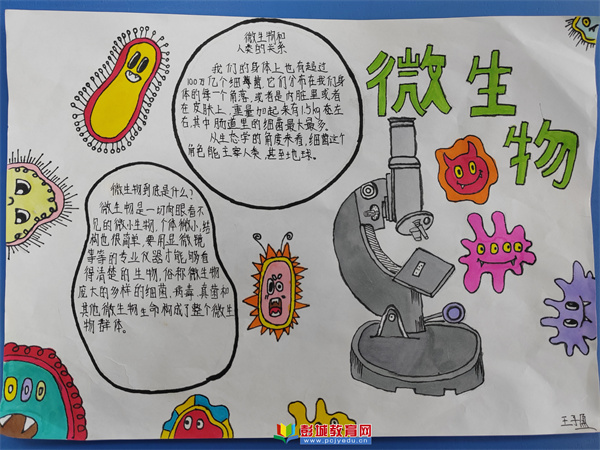 微生物
微生物和
人类的关系
我们的身体上也有超过
100万亿个细菌,它们分布在我们身
体的每一个角落,或者是内脏里或者
在皮肤上,重量加起来有1.5kg左
右,其中肠道里的细菌最大最多。
从生态学的角度来看,细菌这个
角色能主宰人类,甚至地球。
微生物到底是什么?
微生物是一切肉眼看不
见的微小生物,个体微小,结
构也很简单,要用显微镜
等等的专业仪器才能够看
得清楚的生物,俗称微生物
庞大的多样的细菌,病毒,真菌和
其他微生物生命构成了整个微生
物群体。
彭城教育网
www.pcjyedu.cn